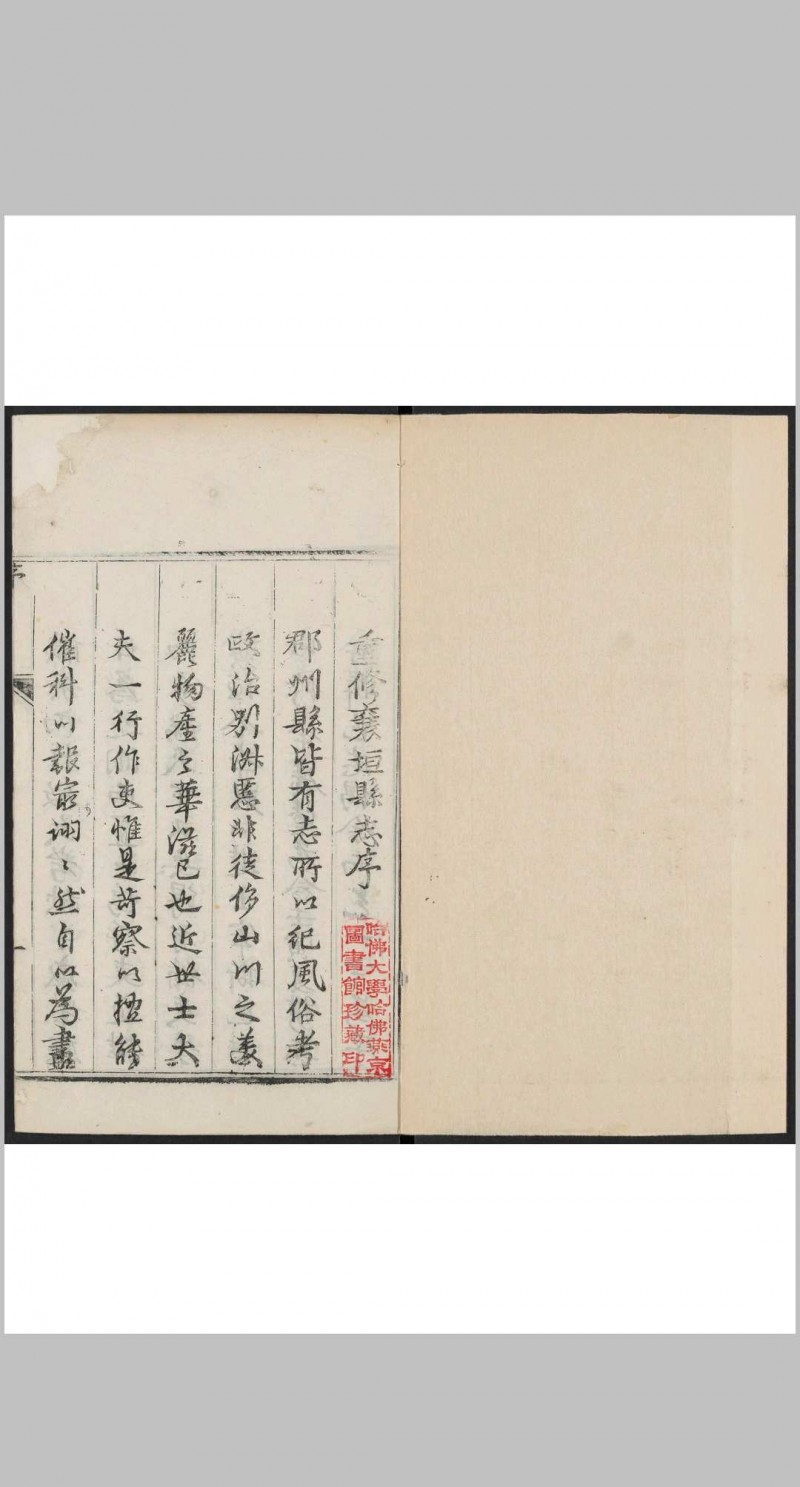 重修襄垣縣志序
郡州縣皆有志所以紀風俗考
政治別淑慝非徒侈山川之美
麗物產之華滋已也近世士大
夫一行作吏惟是苛察以擅能
催科以報最詡〻然自以為盡
哈佛大學哈佛燕京
圖書館珍藏印